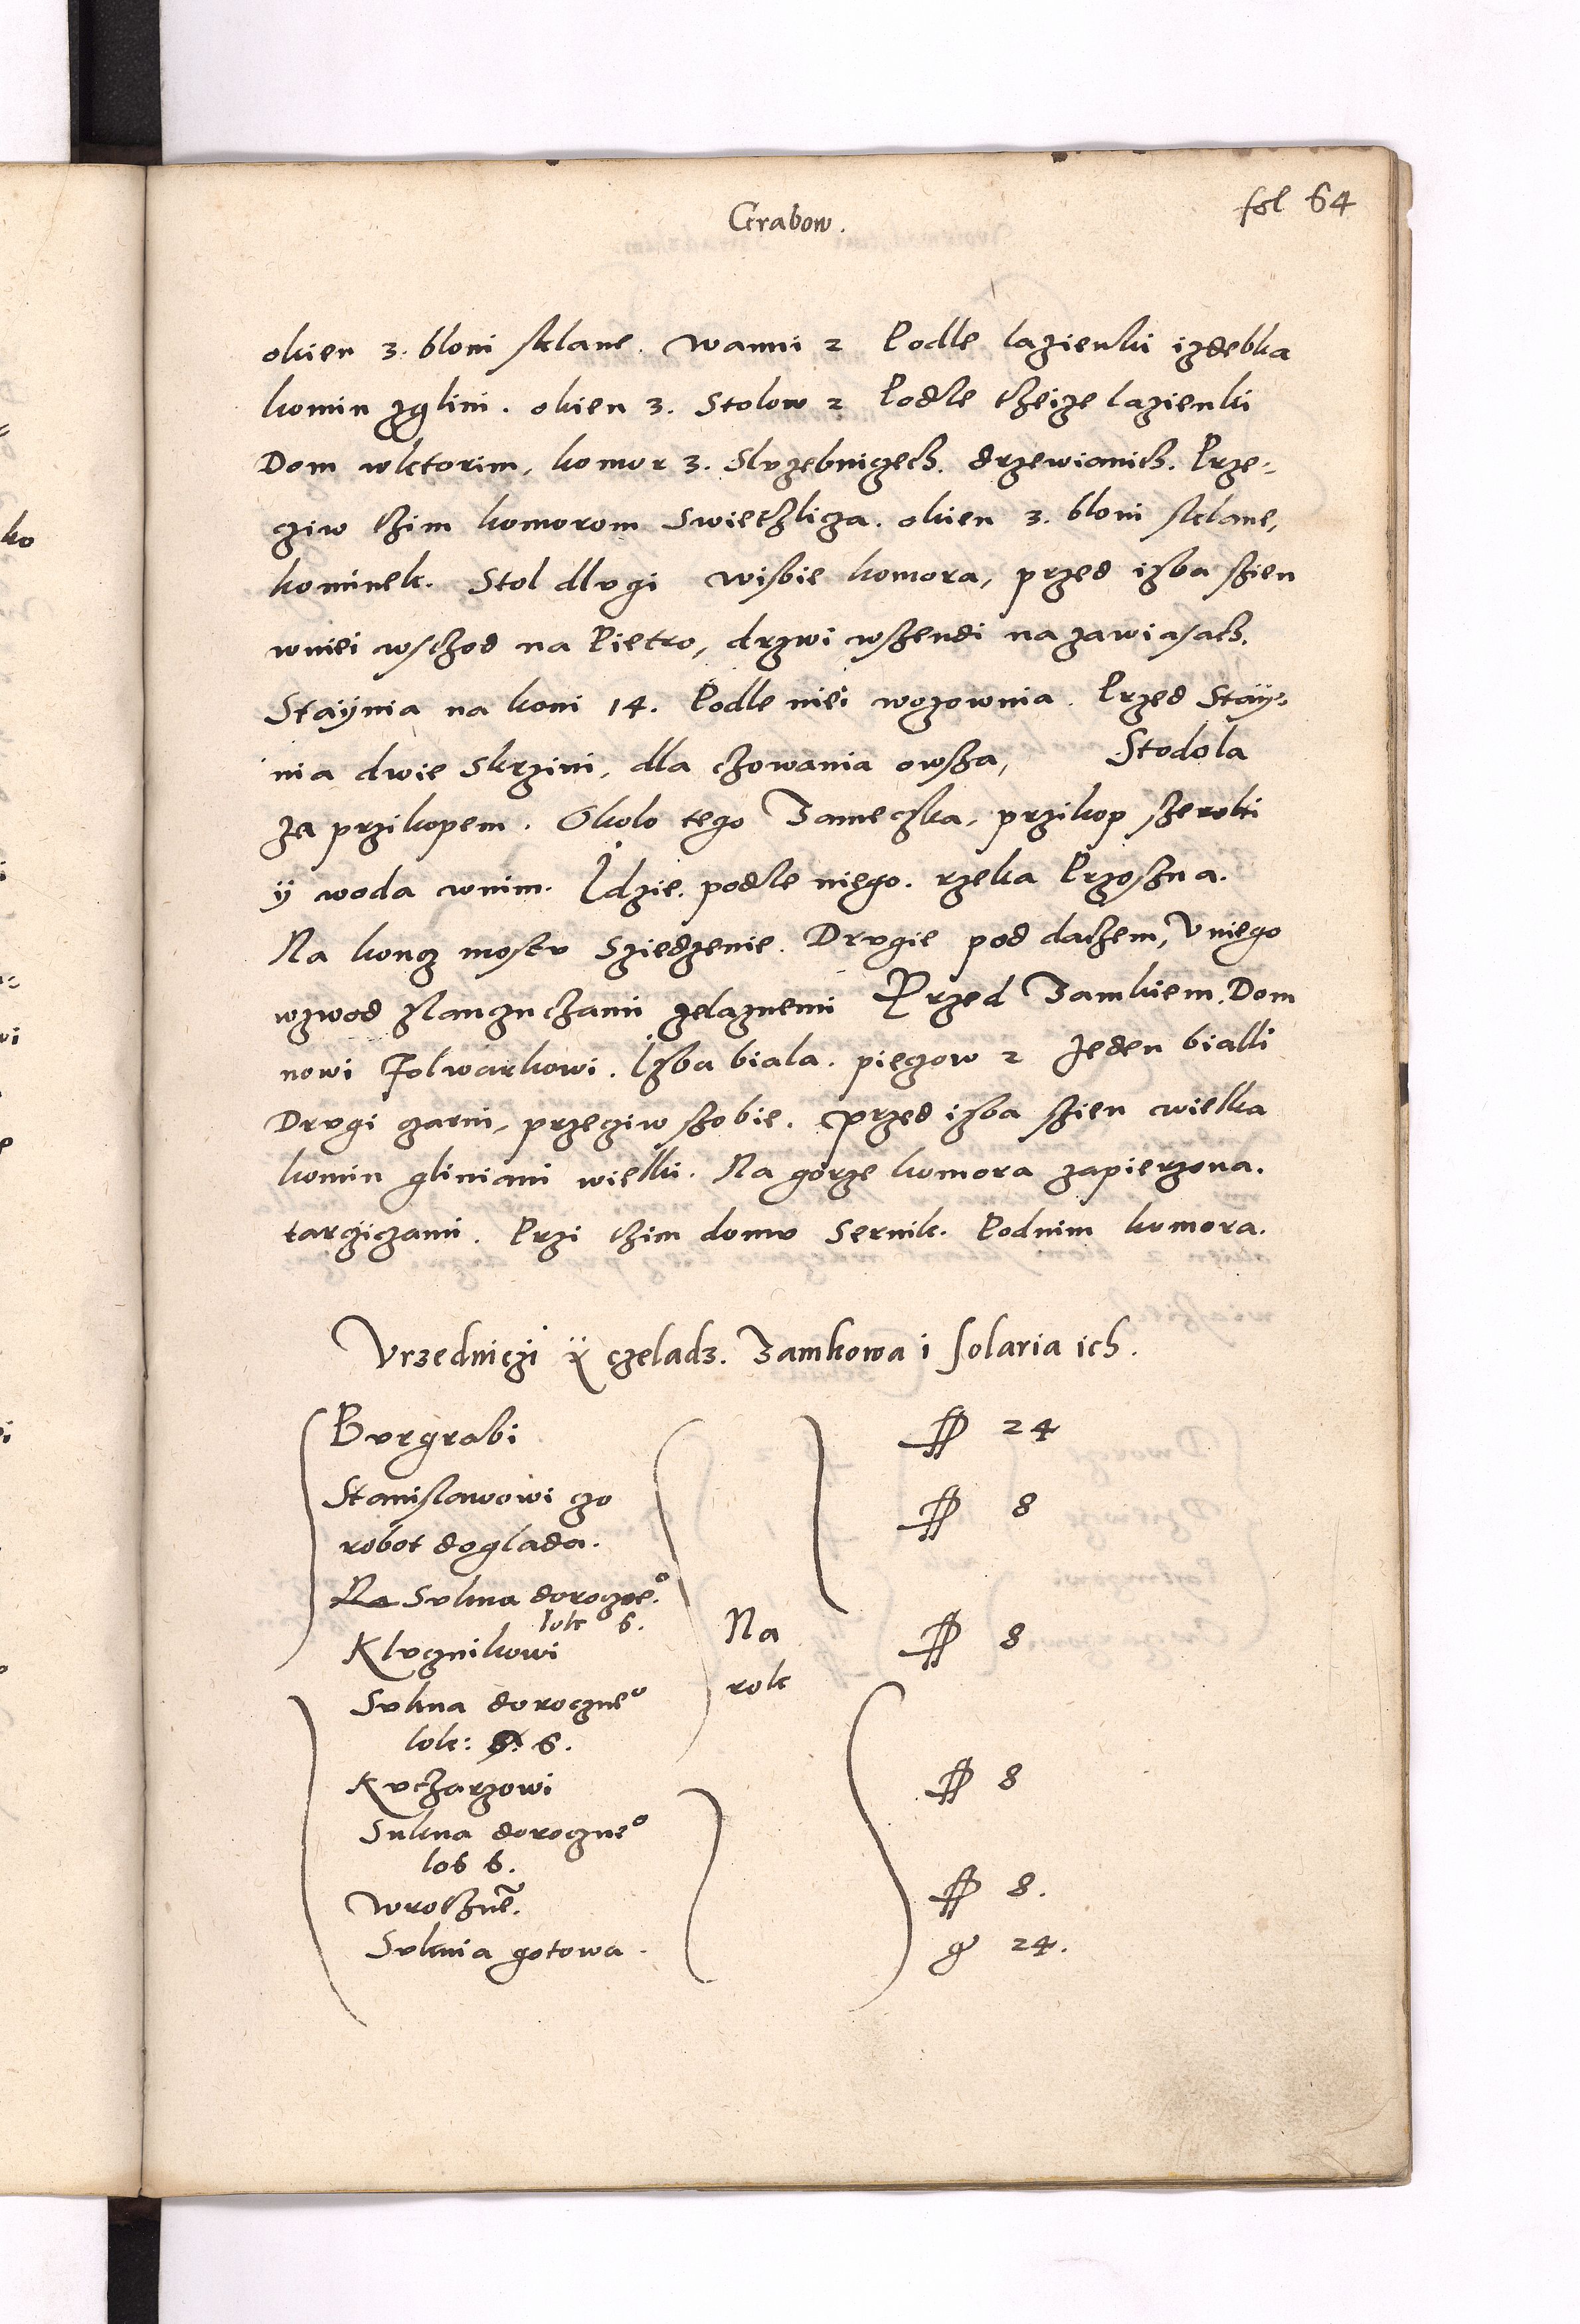 Grabow.
fol 64
okien 3. bloni sklane. wanni 2 Podle lazienki izdebka
komin zglini. okien 3. Stolow 2 Podle theize lazienki
Dom wktorim, komor 3. Slvzebniczech. drzewianich. Prze-
cziw thim komorom Swiethlicza. okien 3. bloni sklane,
kominek. Stol dlvgi wisbie komora, przed izba szien
wniei wschod na Pietro, drzwi wszendi na zawiasach.
Staÿnia na koni 14. Podle niei wozownia. Przed Staÿ-
nia dwie Skrzini, dla chowania owsza, Stodola
za przikopem. Okolo tego Zameczka, przikop szeroki
ÿ woda wnim. Idzie. podle niego. rzeka Prosna.
Na koncz mostv Sziedzenie. Drvgie pod dachem, v niego
wzwod zlanczuchami zelaznemi Przed Zamkiem. Dom
nowi Folwarkowi. Izba biala. pieczow 2 Jeden bialli
Drvgi czarni, przecziw szobie. przed izba szien wielka
komin gliniani wielki. Na gorze komora zapierzona.
tarcziczami. Przi thim domv Sernik. Podnim komora.
Vrzedniczi ÿ czeladz. Zamkowa i solaria ich.
Bvrgrabi ₶ 24
Stanislawowi czo ₶ 8
robot doglada.
Na Svkna doroczneo.
lok 6.
Klvcznikowi Na ₶ 8
Svkna doroczneo rok
lok: 6.
Kvcharzowi ₶ 8
Sukna doroczneo
lok 6.
Wrothne. ₶ 8.
Svknia gotowa. gr 24.